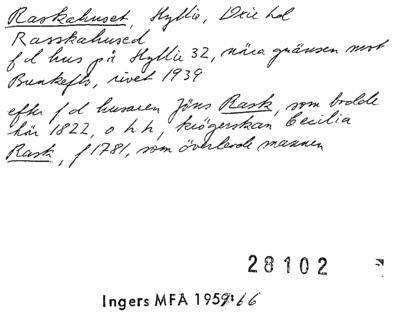 Raskahuset, Hyllie, Oxie hd
Rasskahused
f d hus på Hyllie 32, nära gränsen mot
Bunkeflo, rivet 1939
efter f d husaren Jöns Rask, som bodde
här 1822, o h h, krögerskan Cecilia
Rask, f 1781, som överlevde mannen
28102
Ingers MFA 1959:66